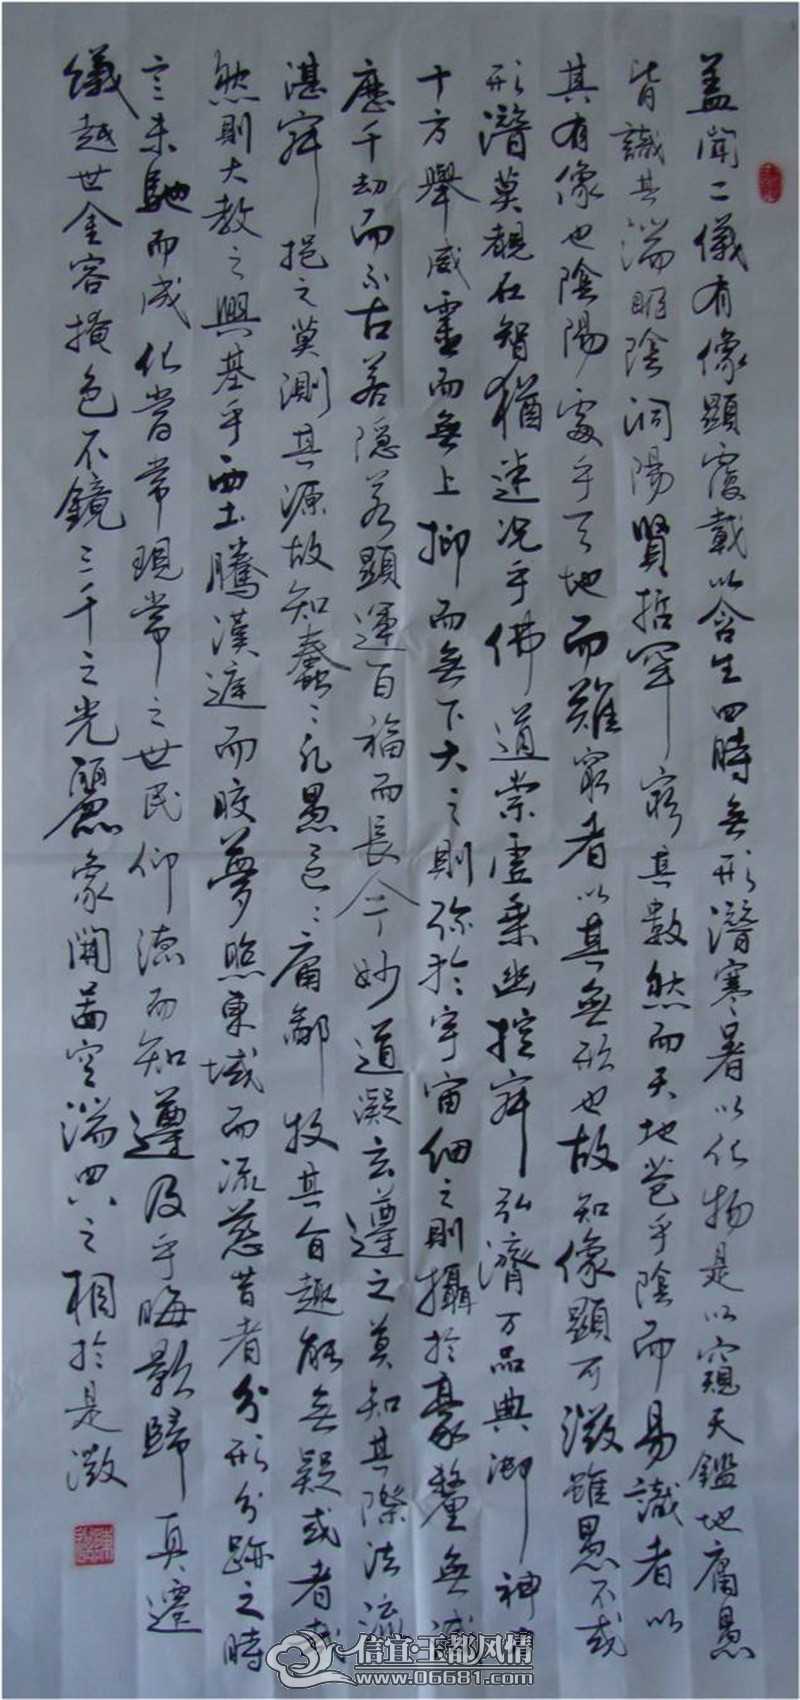 盖聞二儀有像顯覆載以含生四時無形潛寒暑以化物是以窺天鑑地庸愚
皆識其端明陰洞陽賢哲罕窮其數然而天地苞乎陰而易識者以
其有像也陰陽處乎天地而難窮者以其無形也故知像顯可徵雖愚不或
形潛莫覩在智猶迷况乎佛道崇虛乘幽控寂弘濟万品典御神
十方舉威靈而無上抑而無下大之則弥於宇宙細之則攝於豪釐無滅
應千劫而不古若隱若顯運百福而長今妙道凝玄遵之莫知其際法流
湛寂挹之莫測其源故知蠢〻凡愚區〻庸鄙投其旨趣能無疑或者哉
然則大教之興基乎西土騰漢庭而皎夢照東域而流慈昔者分形分跡之時
言未馳而成化當常現常之世民仰德而知遵及乎晦影歸真遷
儀越世金容掩色不鏡三千之光麗象開圖空端四八之相於是微
信宜·玉都风情
www.06681.com